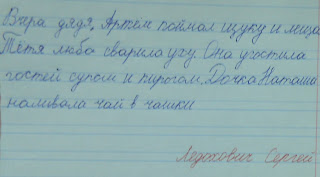 Вчера дядя Артём поймал щуку и леща
Тётя люба сварила уху. Она угостила
гостей супом и пирогом. Дочка Наташа
наливала чай в чашки
Ледохович Сергей